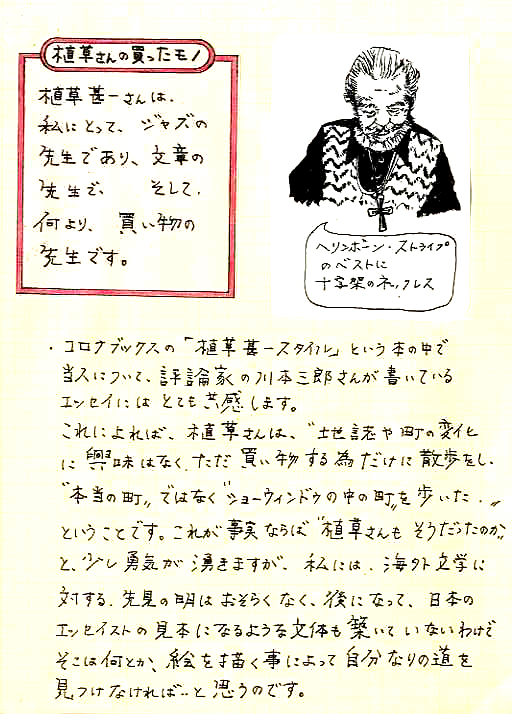 植草さんの買ったモノ
植草甚一さんは、
私にとって、ジャズの
先生であり、文章の
先生で、 そして、
何より、買い物の
先生です。
ヘリンボーン・ストライプ
のベストに
十字架のネックレス
・コロナブックスの「植草甚一スタイル」という本の中で
当人について、評論家の川本三郎さんが書いている
エッセイにはとても共感します。
これによれば、植草さんは、“土地誌や町の変化
に興味はなく、ただ買い物する為だけに散歩をし、
“本当の町〟ではなく“ショーウィンドウの中の町〟を歩いた。〟
ということです。これが事実ならば“植草さんもそうだったのか〟
と、少し勇気が湧きますが、私には、海外文学に
対する、先見の明はおそらくなく、後になって、日本の
エッセイストの見本になるような文体も築いていないわけで
そこは何とか、絵を描く事によって自分なりの道を
見つけなければ…と思うのです。